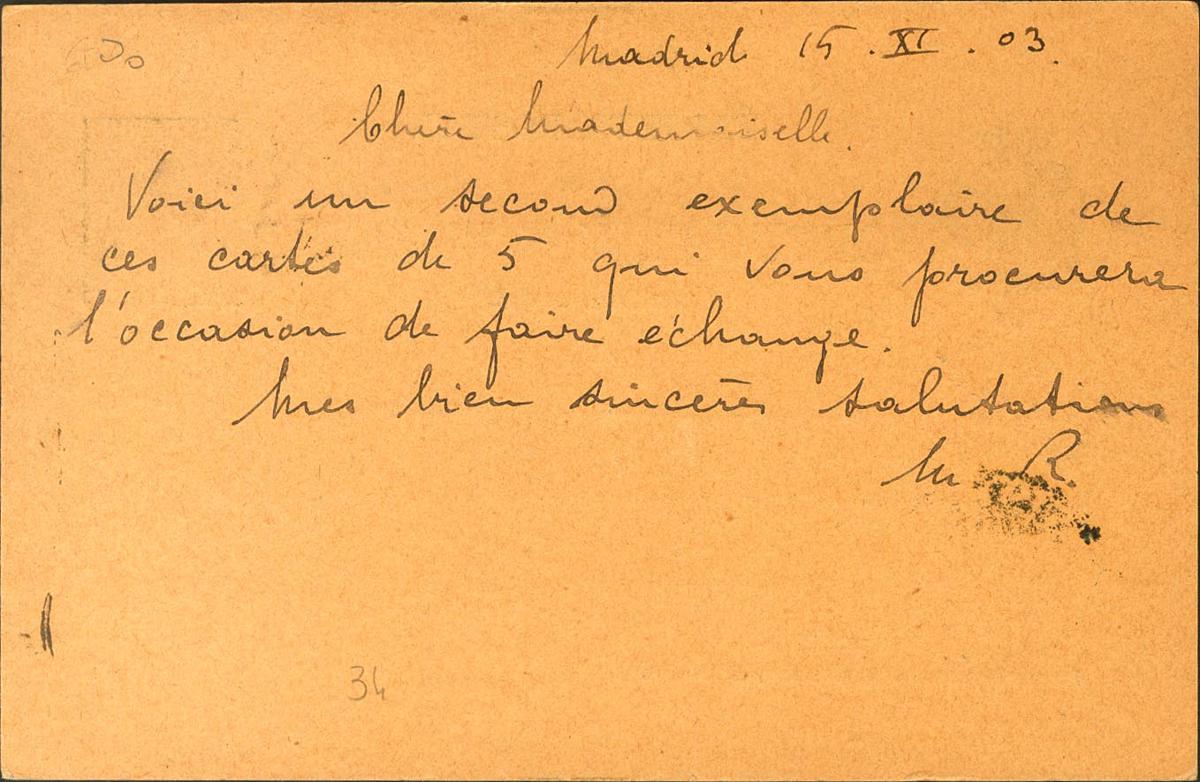 Madrid 15.XI.03.
Chère Mademoiselle.
Voici un second exemplaire de
ces cartes de 5 qui vous procurera
l'occasion de faire échange.
Mes bien sincères salutations
M R.
34